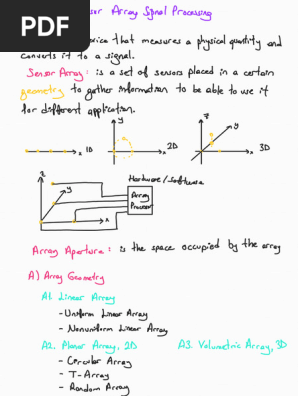 PDF
sor Array Signal Processing
ice that measures a physical quantity and
converts it to a signal.
Sensor Array : is a set of sensors placed in a certain
geometry to gather information to be able to use it
for different application.
y
y
z
y
x 1D
x 2D
x 3D
Hardware/Software
z
y
x
Array
Processor
Array Aperture : is the space occupied by the array
A) Array Geometry
A1. Linear Array
- Uniform Linear Array
- Nonuniform Linear Array
A2. Planar Array, 2D
A3. Volumetric Array, 3D
- Circular Array
- T-Array
- Random Array